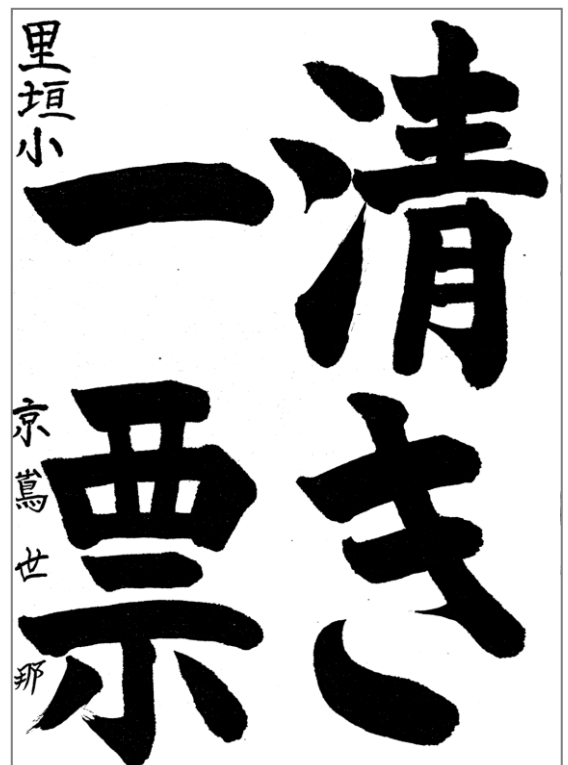 清き
一票
里垣小
京嶌世那